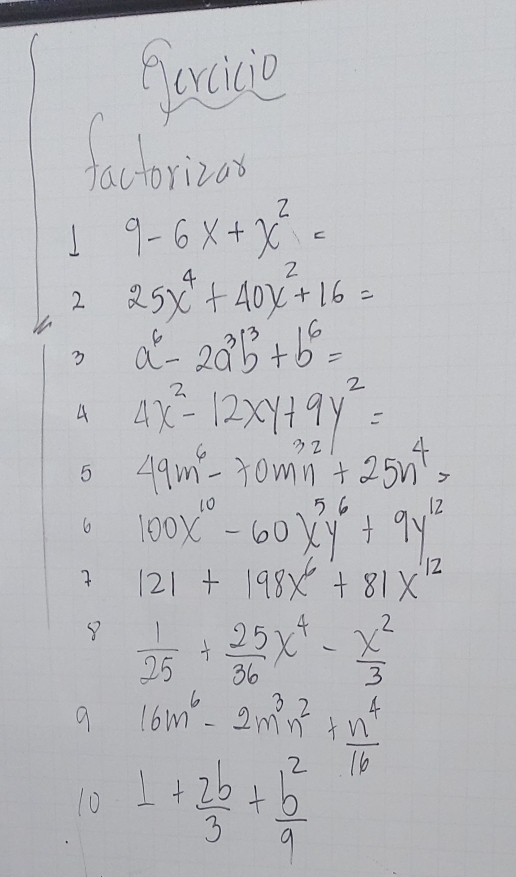 Ejercicio
factorizar
1 9 - 6x + x² =
2 25x⁴ + 40x² + 16 =
3 a⁶ - 2a³b³ + b⁶ =
4 4x² - 12xy + 9y² =
5 49m⁶ - 70m³n² + 25n⁴ =
6 100x¹⁰ - 60x⁵y⁶ + 9y¹²
7 121 + 198x⁶ + 81x¹²
8 1/25 + 25/36 x⁴ - x²/3
9 16m⁶ - 2m³n² + n⁴/16
10 1 + 2b/3 + b²/9